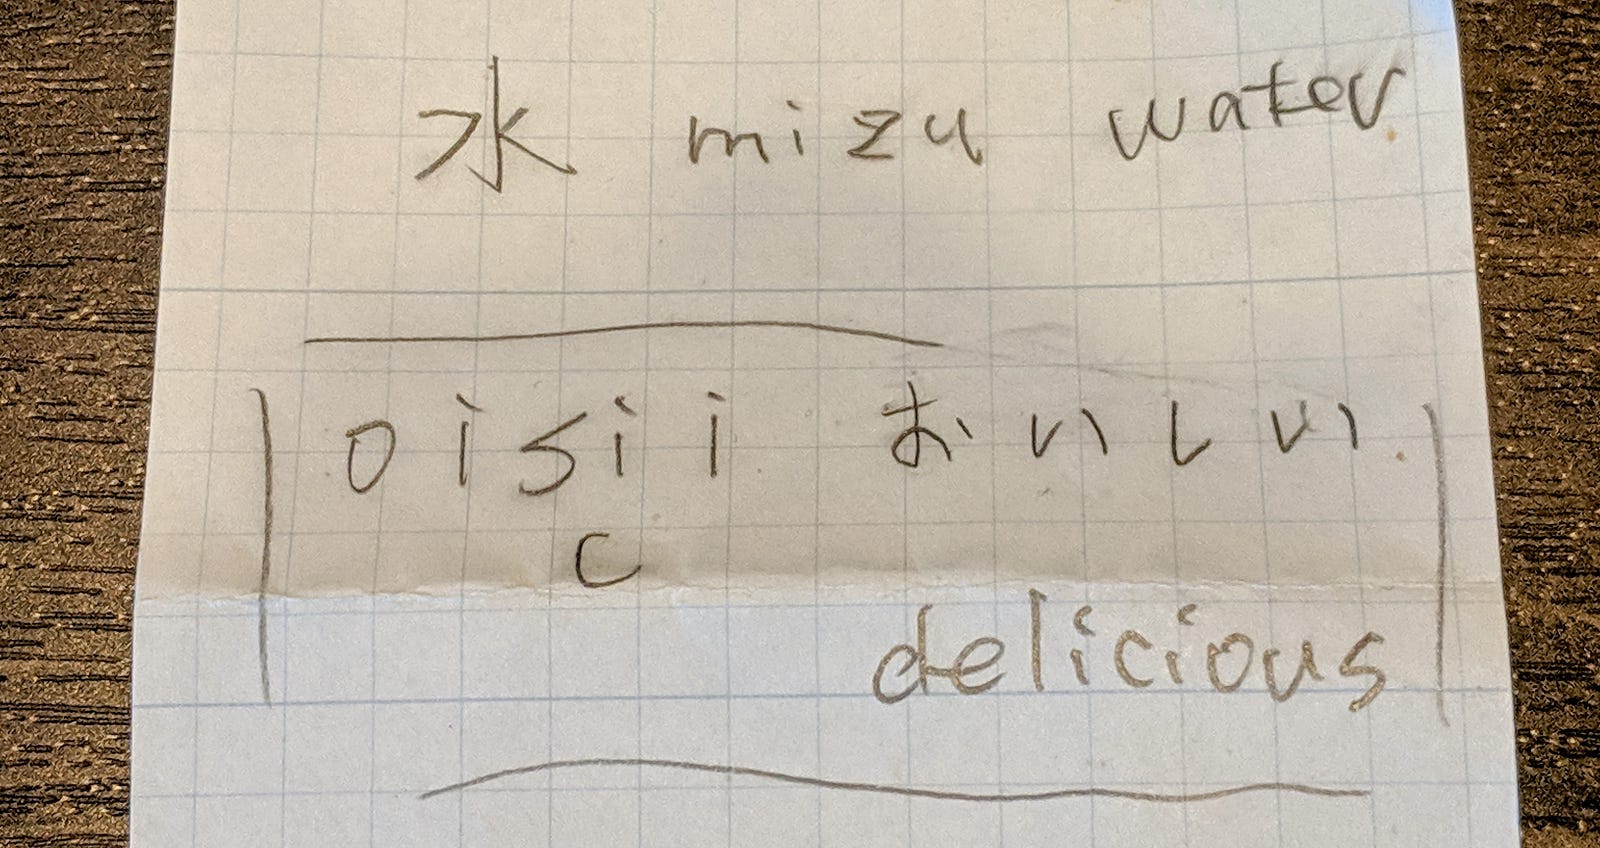 水 mizu water
oisii おいしい
c
delicious